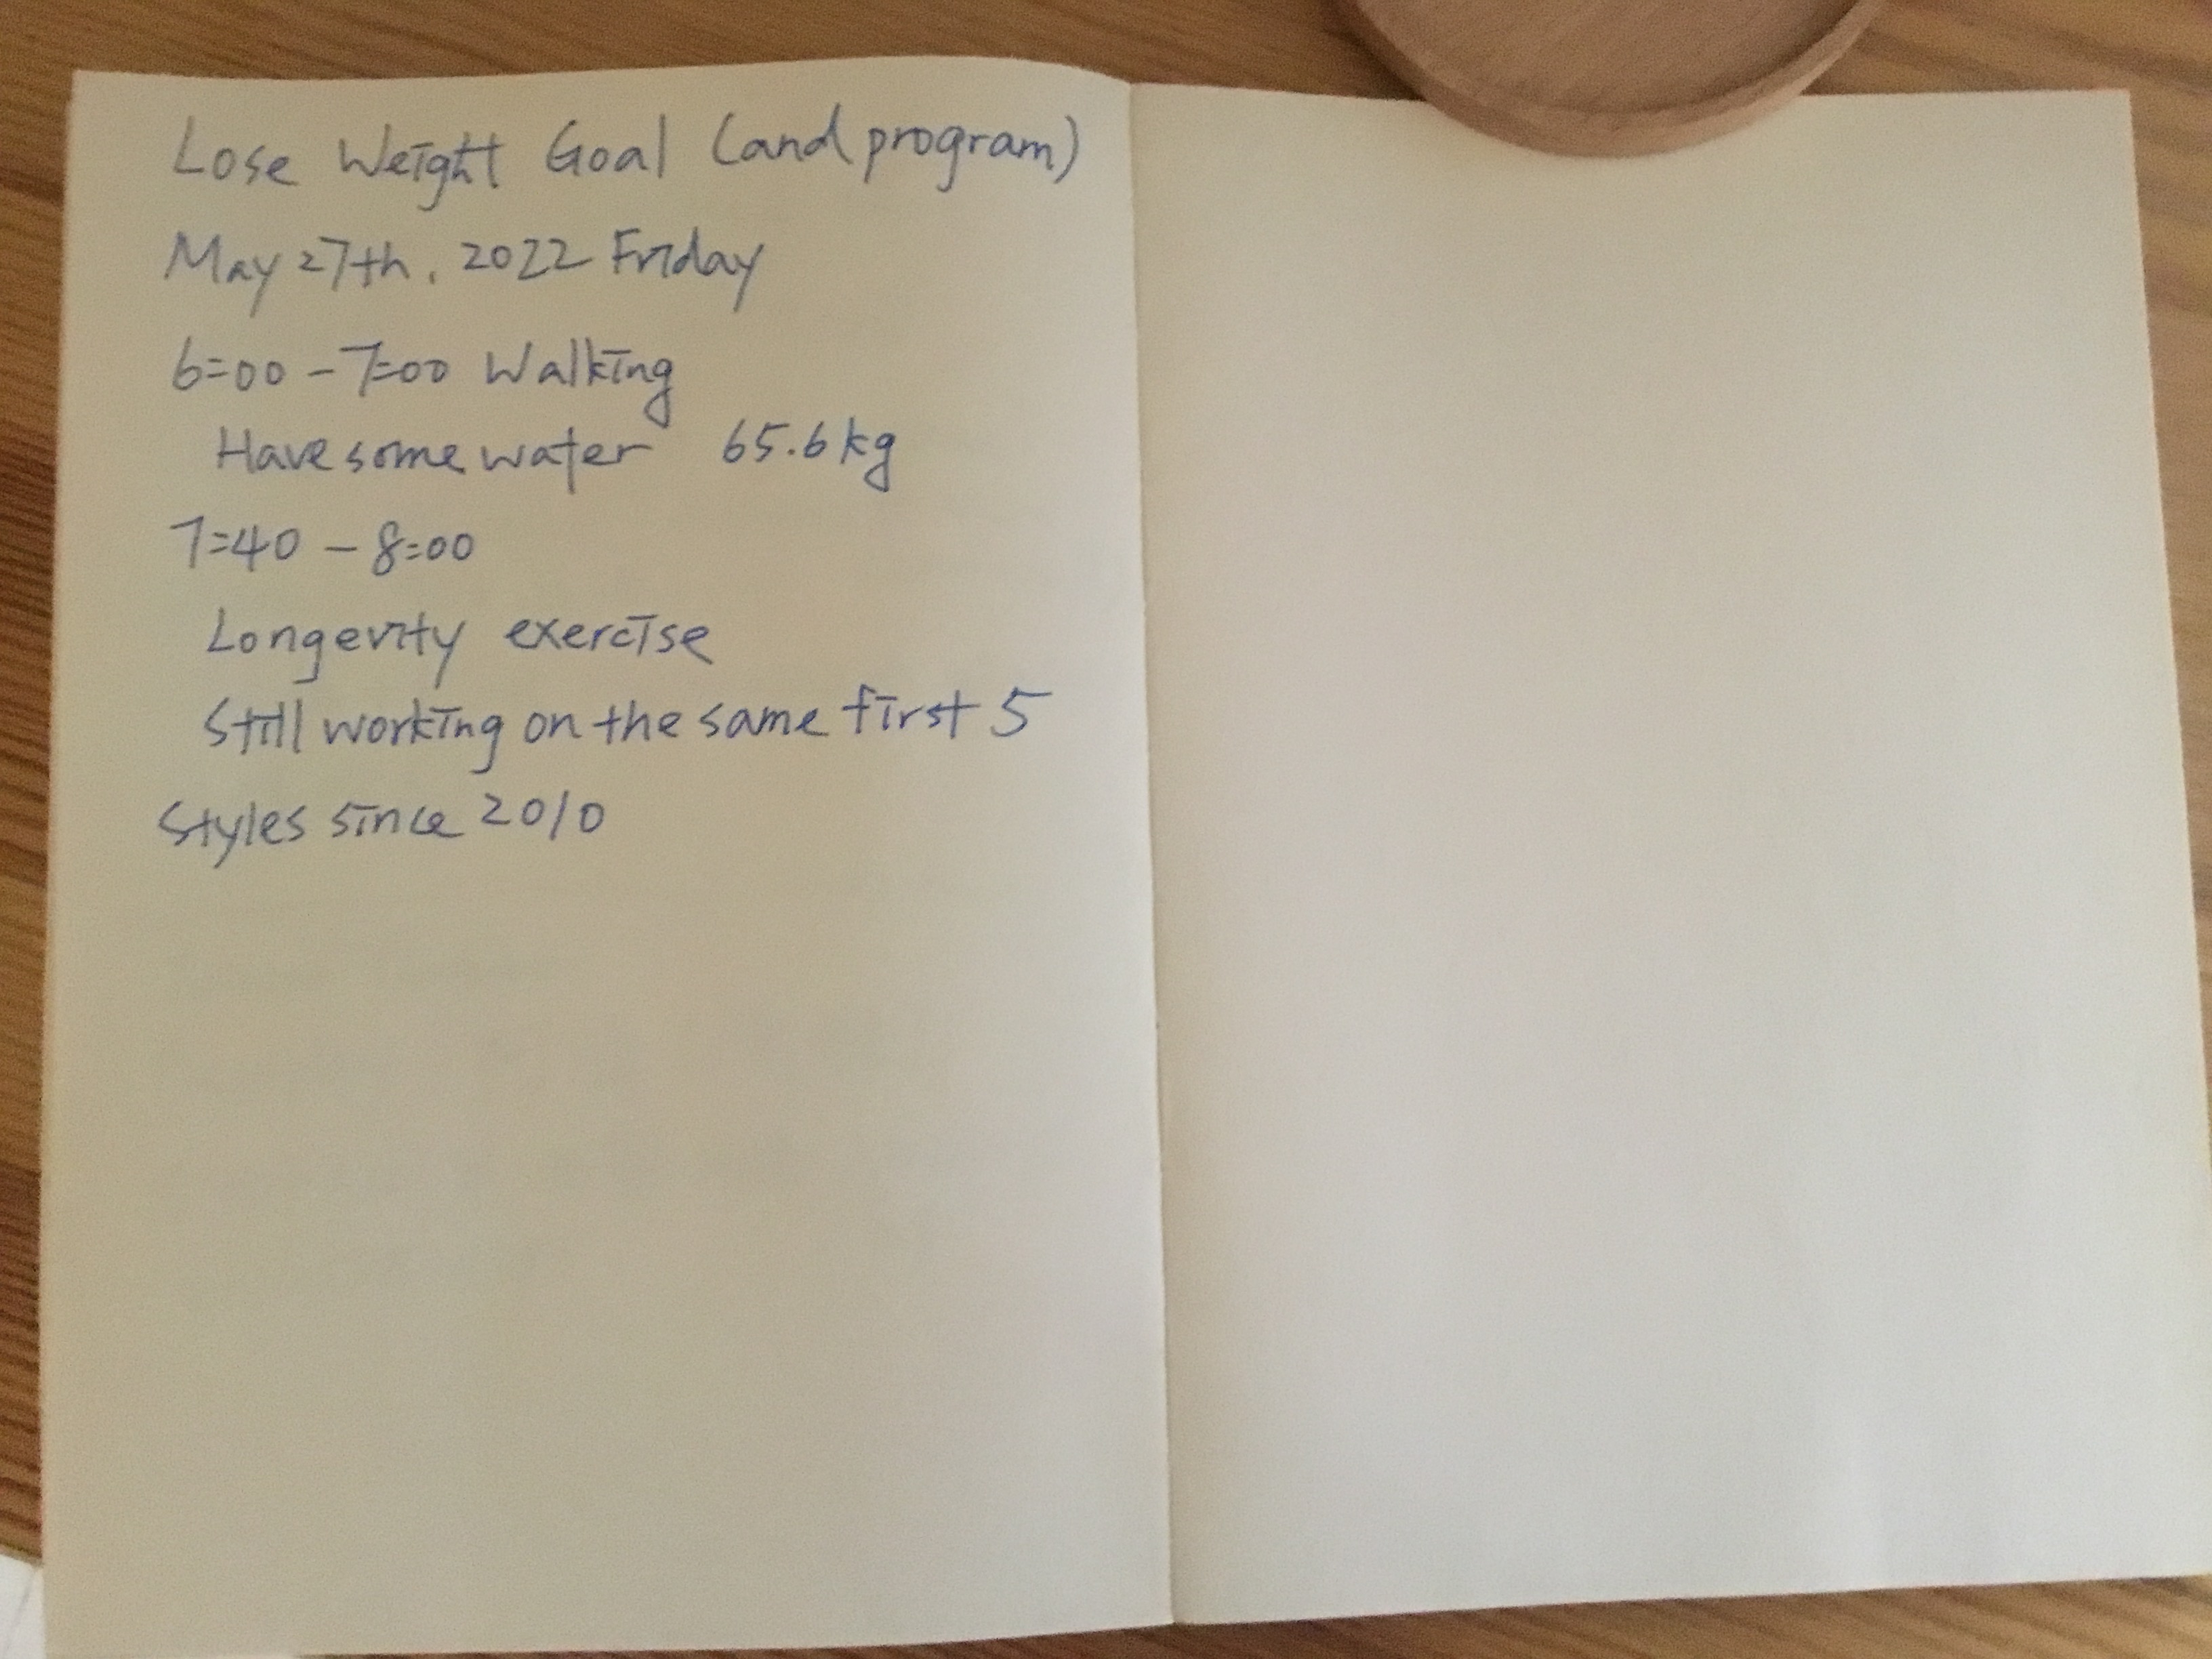 Lose Weight Goal (and program)
May 27th, 2022 Friday
6:00 - 7:00 Walking
Have some water 65.6 kg
7:40 - 8:00
Longevity exercise
Still working on the same first 5
Styles since 2010